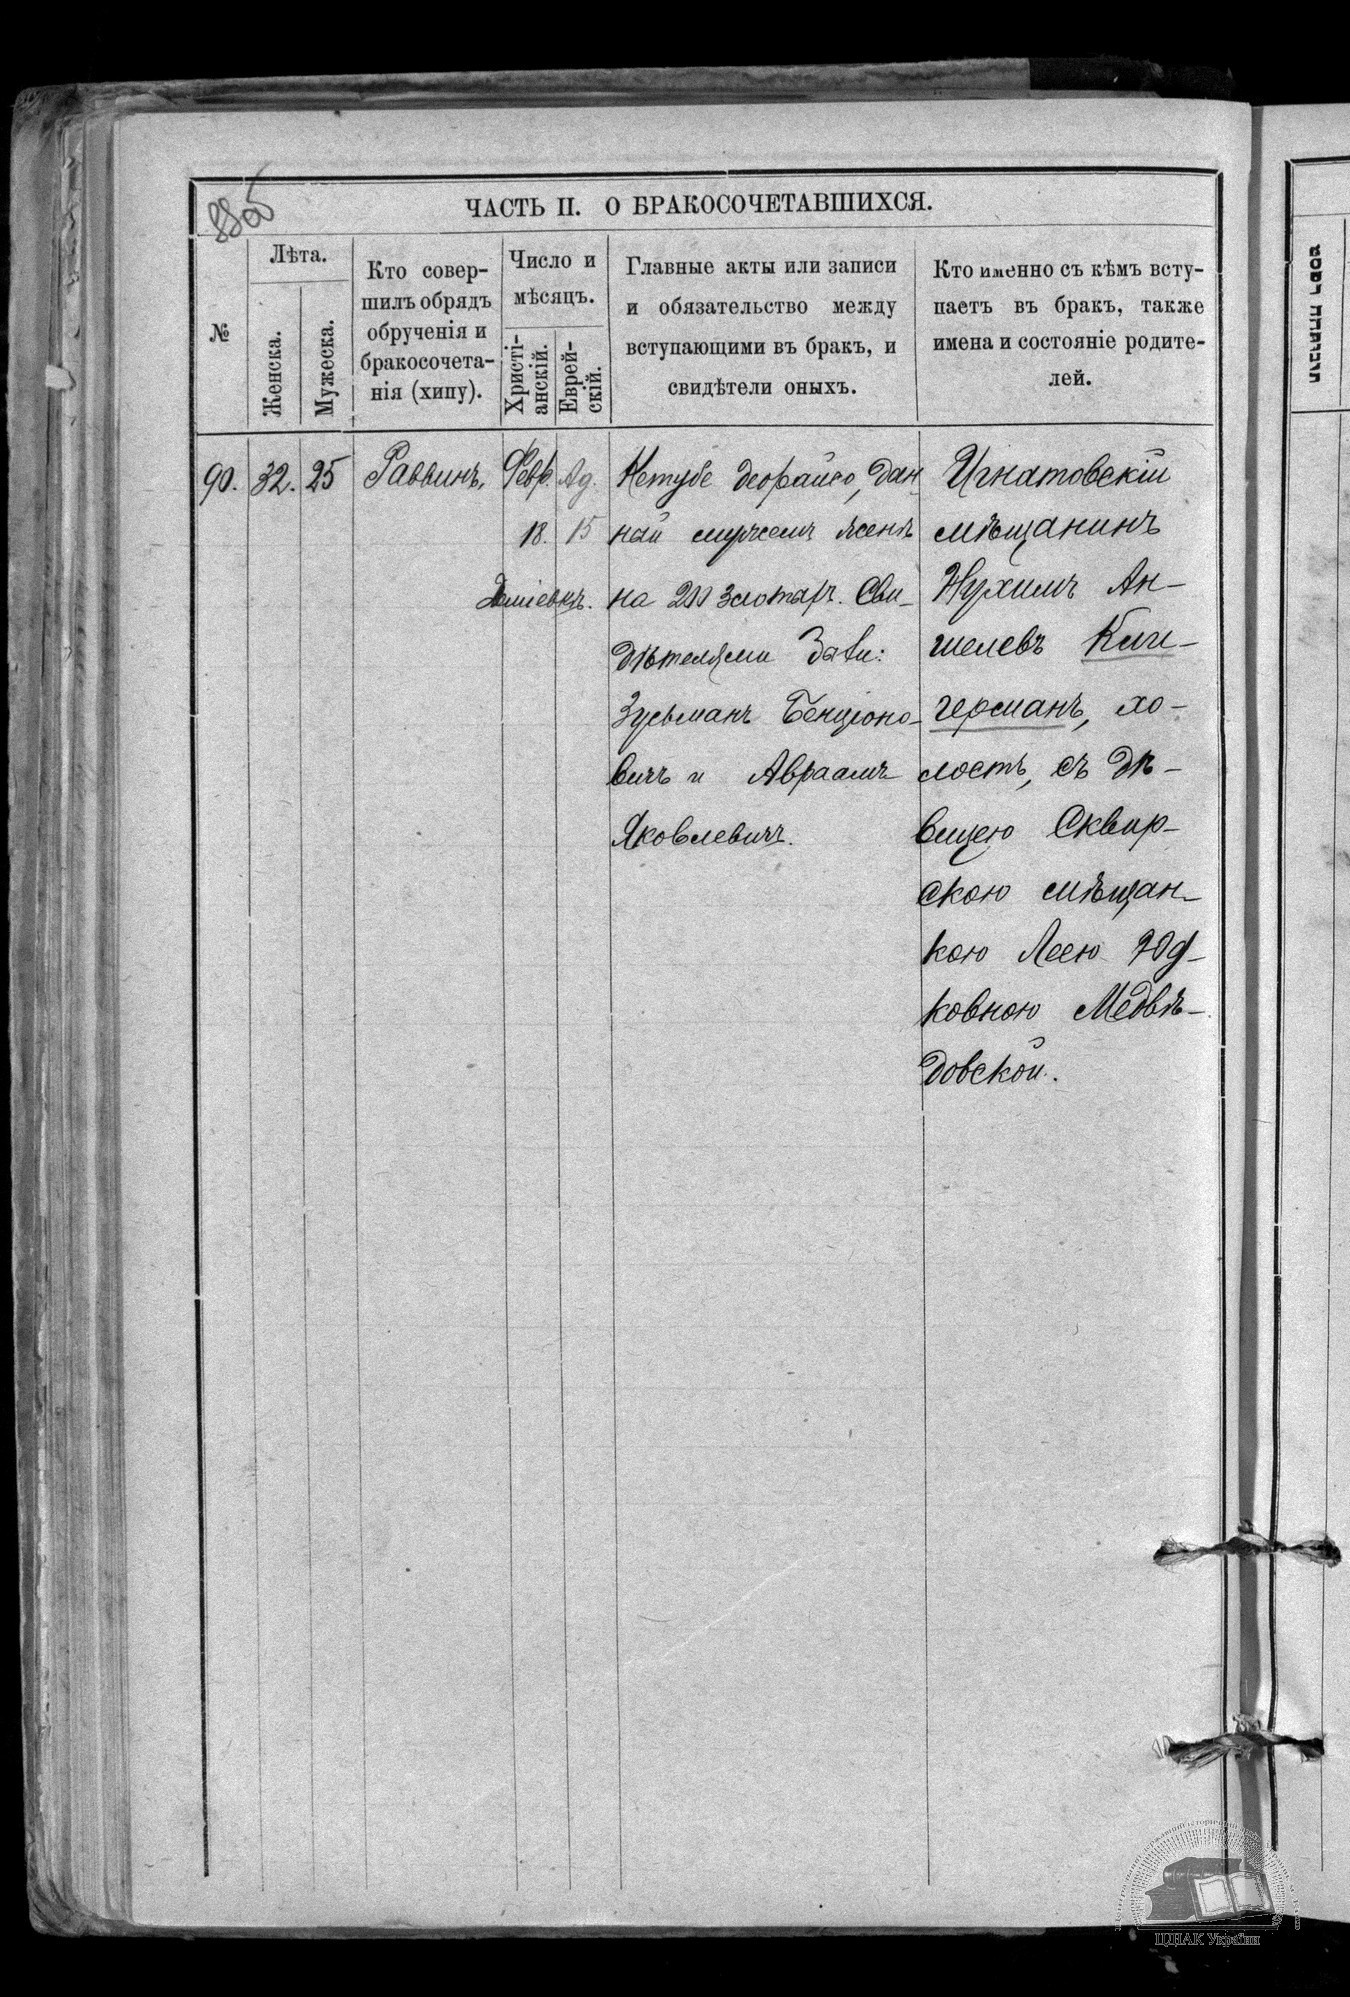 88об
ЧАСТЬ II. О БРАКОСОЧЕТАВШИХСЯ.
№
Лѣта.
Женска.
Мужеска.
Кто совер-
шилъ обрядъ
обрученія и
бракосочета-
нія (хипу).
Число и
мѣсяцъ.
Христі-
анскій.
Еврей-
скій.
Главные акты или записи
и обязательство между
вступающими въ бракъ, и
свидѣтели оныхъ.
Кто именно съ кѣмъ всту-
паетъ въ бракъ, также
имена и состояніе родите-
лей.
90.
32.
25
Раввинъ.
Февр.
18.
Ад.
15
Кетубе деорайсо, дан
ный мужемъ женѣ
на 200 злотыхъ. Сви-
дѣтелями
Зусьманъ Бенціоно-
вичъ и Авраамъ
Яковлевичъ.
Игнатовскій
мѣщанинъ
Нухимъ Ан-
шелевъ Клиг-
германъ, хо-
лостъ, съ дѣ-
вицею Сквир-
скою мѣщан-
кою Леею Юд-
ковною Медвѣ-
довской.
ЦДІАК України